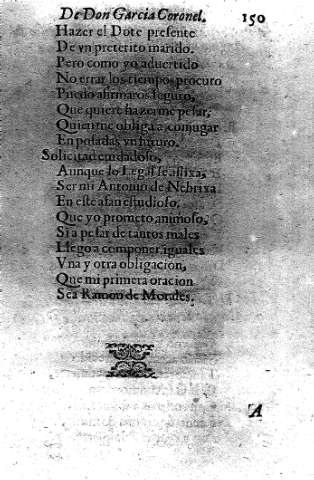 De Don Garcia Coronel. 150
Hazer el Dote presente
De vn preterito marido.
Pero como yo aduertido
No errar los tiempos procuro
Puedo afirmaros seguro,
Que quiere hazerme pesar,
Quien me obliga a conjugar
En posadas vn futuro.
Solicitad cuydadoso,
Aunque lo Legal se aflixa,
Ser mi Antonio de Nebrixa
En este afan estudioso.
Que yo prometo animoso,
Si a pesar de tantos males
Llego a componer iguales
Vna y otra obligacion,
Que mi primera oracion
Sea Ramon de Morales.
A